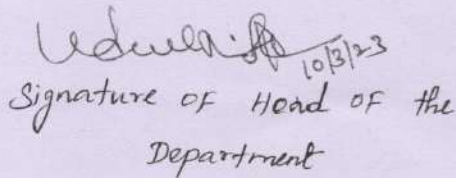 10/3/23
Signature of Head of the
Department